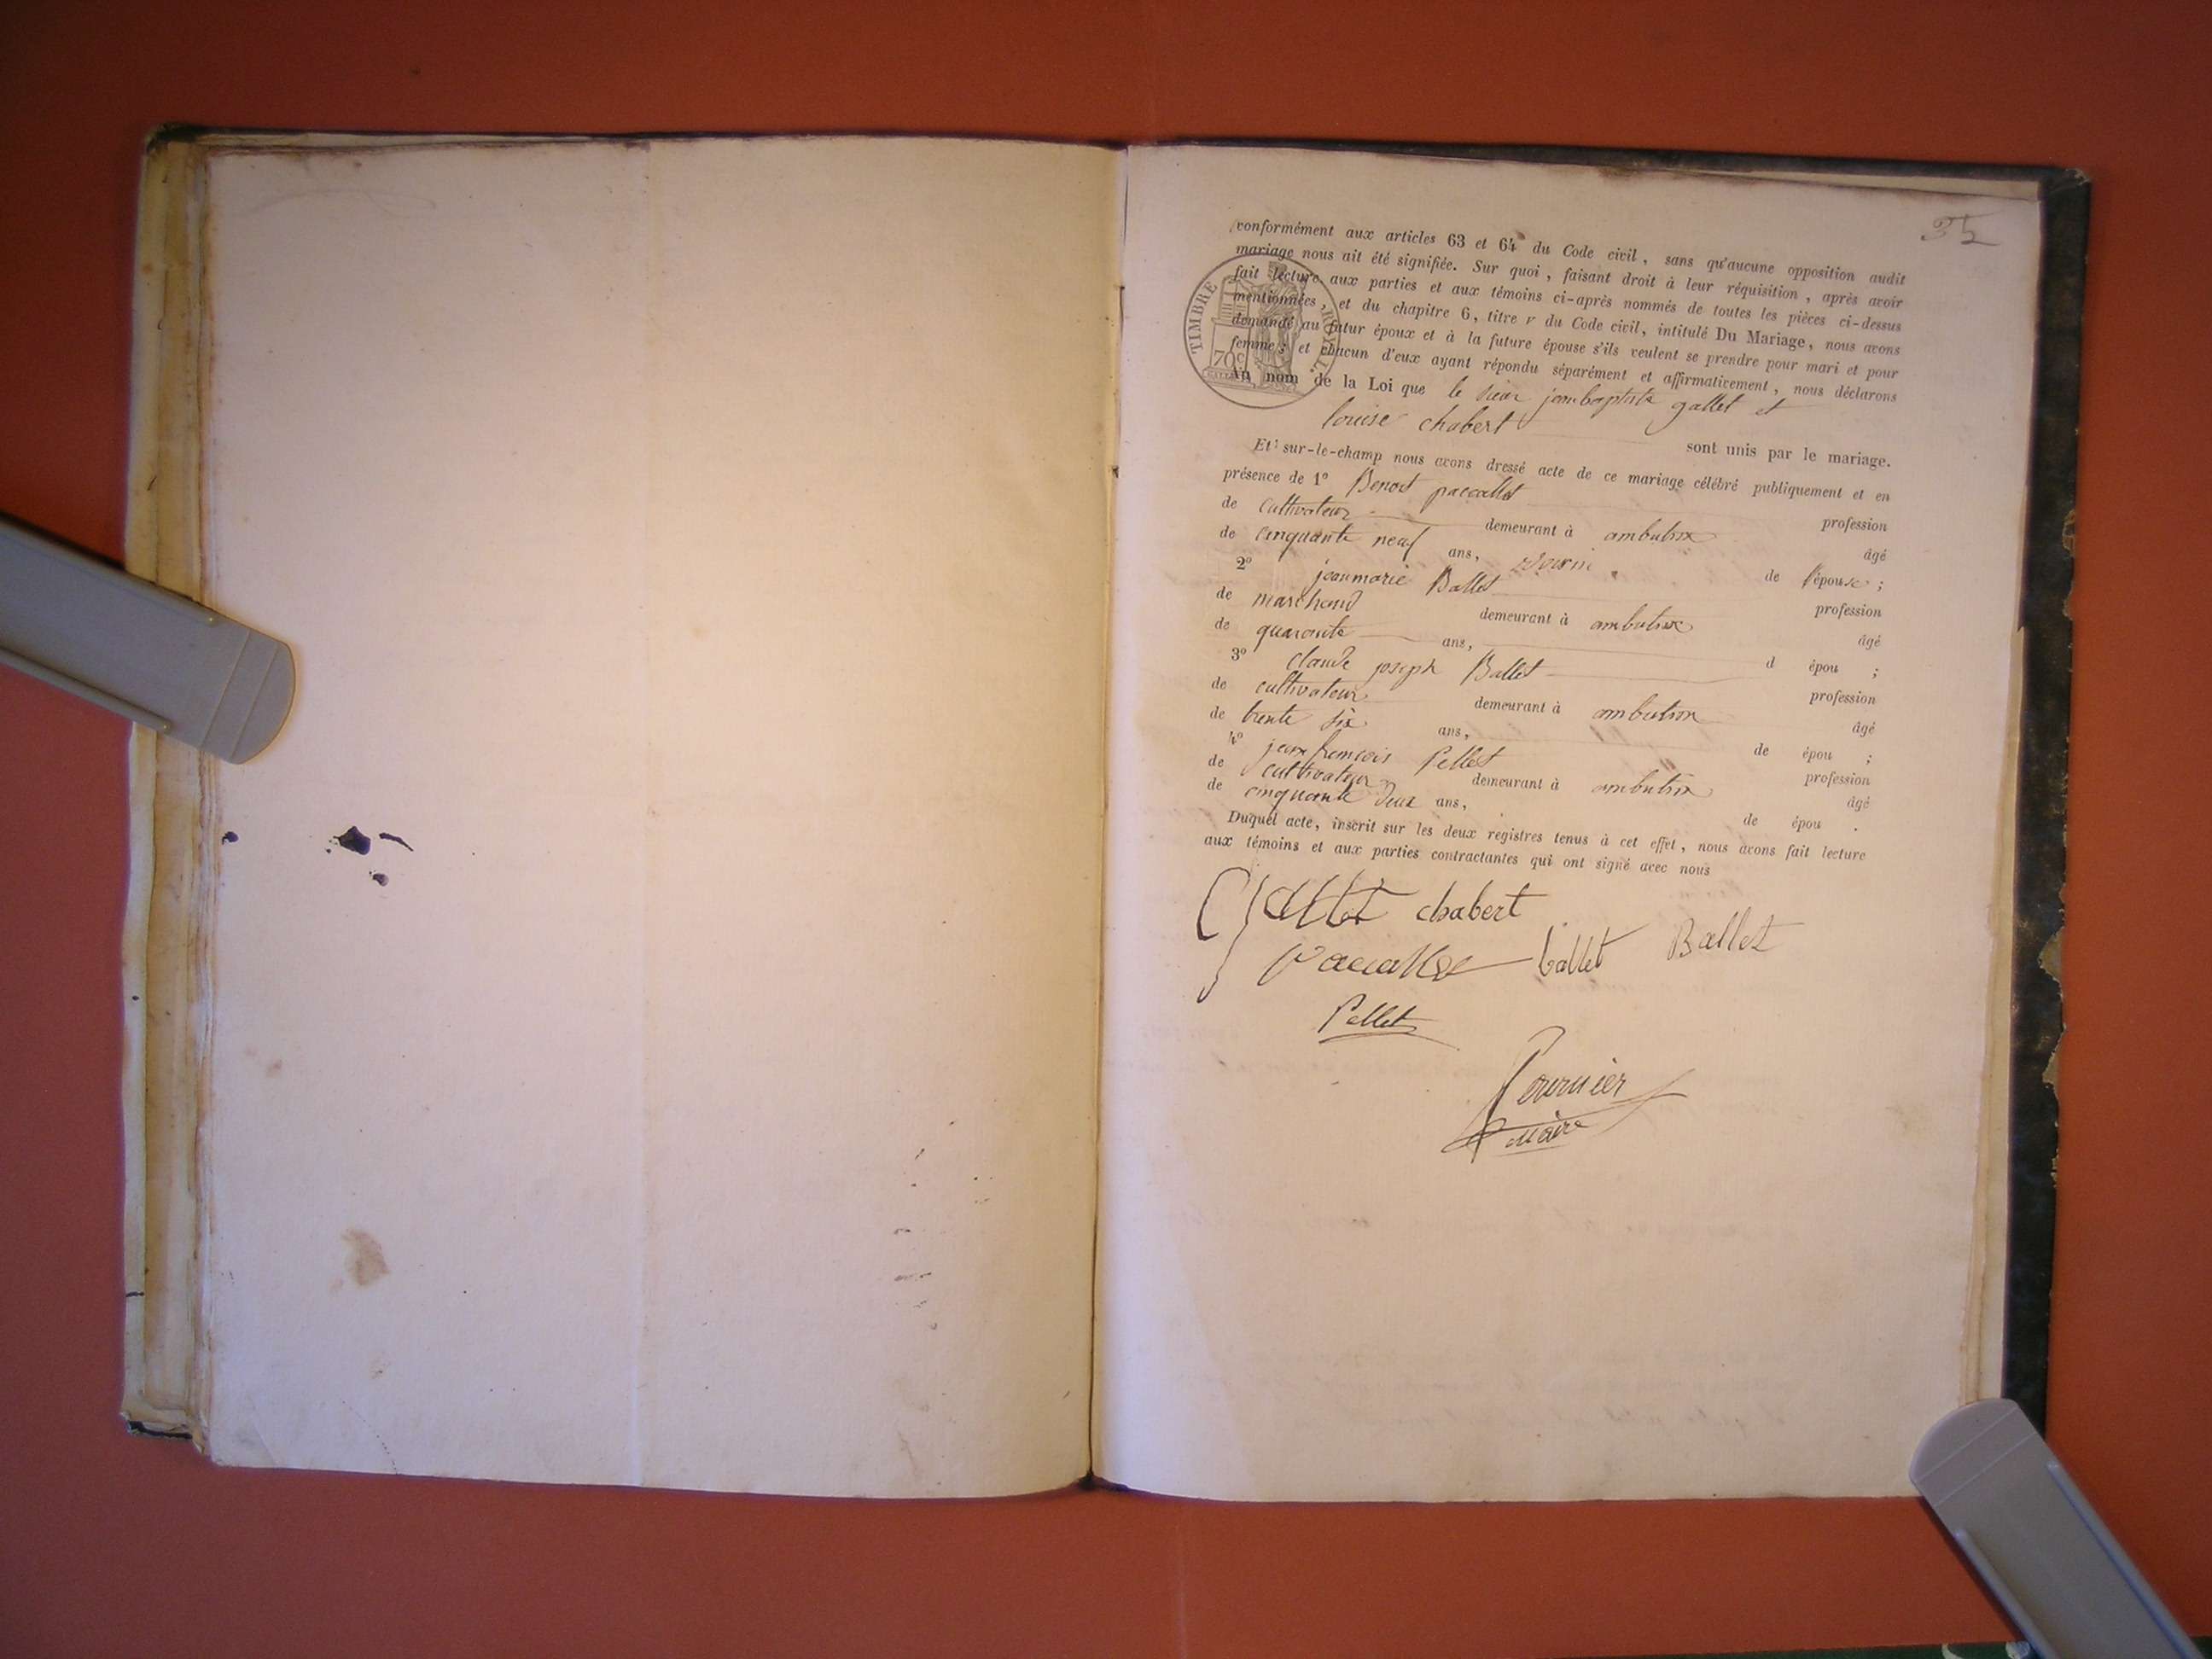 35
conformément aux articles 63 et 64 du Code civil, sans qu'aucune opposition audit
mariage nous ait été signifiée. Sur quoi, faisant droit à leur réquisition, après avoir
fait lecture aux parties et aux témoins ci-après nommés de toutes les pièces ci-dessus
mentionnées, et du chapitre 6, titre v du Code civil, intitulé Du Mariage, nous avons
demandé au futur époux et à la future épouse s'ils veulent se prendre pour mari et pour
femme; et chacun d'eux ayant répondu séparément et affirmativement, nous déclarons
Au nom de la Loi que le sieur jean baptiste gallet et
louise chabert sont unis par le mariage.
TIMBRE ROYAL
70c
Et sur-le-champ nous avons dressé acte de ce mariage célébré publiquement et en
présence de 1º Benoit paccallet profession
de cultivateur demeurant à ambutrix âgé
de cinquante neuf ans, de l'épouse;
2º jean marie Ballet profession
de marchand demeurant à ambutrix âgé
de quarante ans, d épou ;
3º claude joseph Ballet profession
de cultivateur demeurant à ambutrix âgé
de trente six ans, de épou ;
4º jean francois Pellet profession
de cultivateur demeurant à ambutrix âgé
de cinquante deux ans, de épou .
Duquel acte, inscrit sur les deux registres tenus à cet effet, nous avons fait lecture
aux témoins et aux parties contractantes qui ont signé avec nous
Gallet chabert
Paccallet ballet Ballet
Pellet
fournier
maire